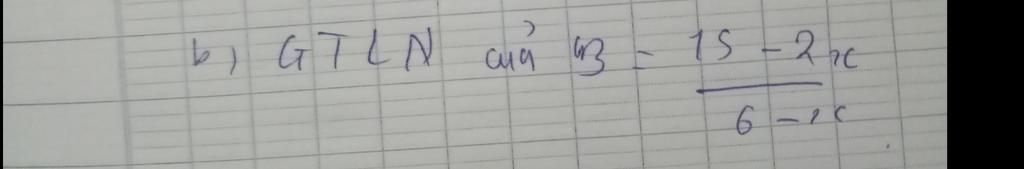 b) GTLN của B = 15 - 2x
6 - x